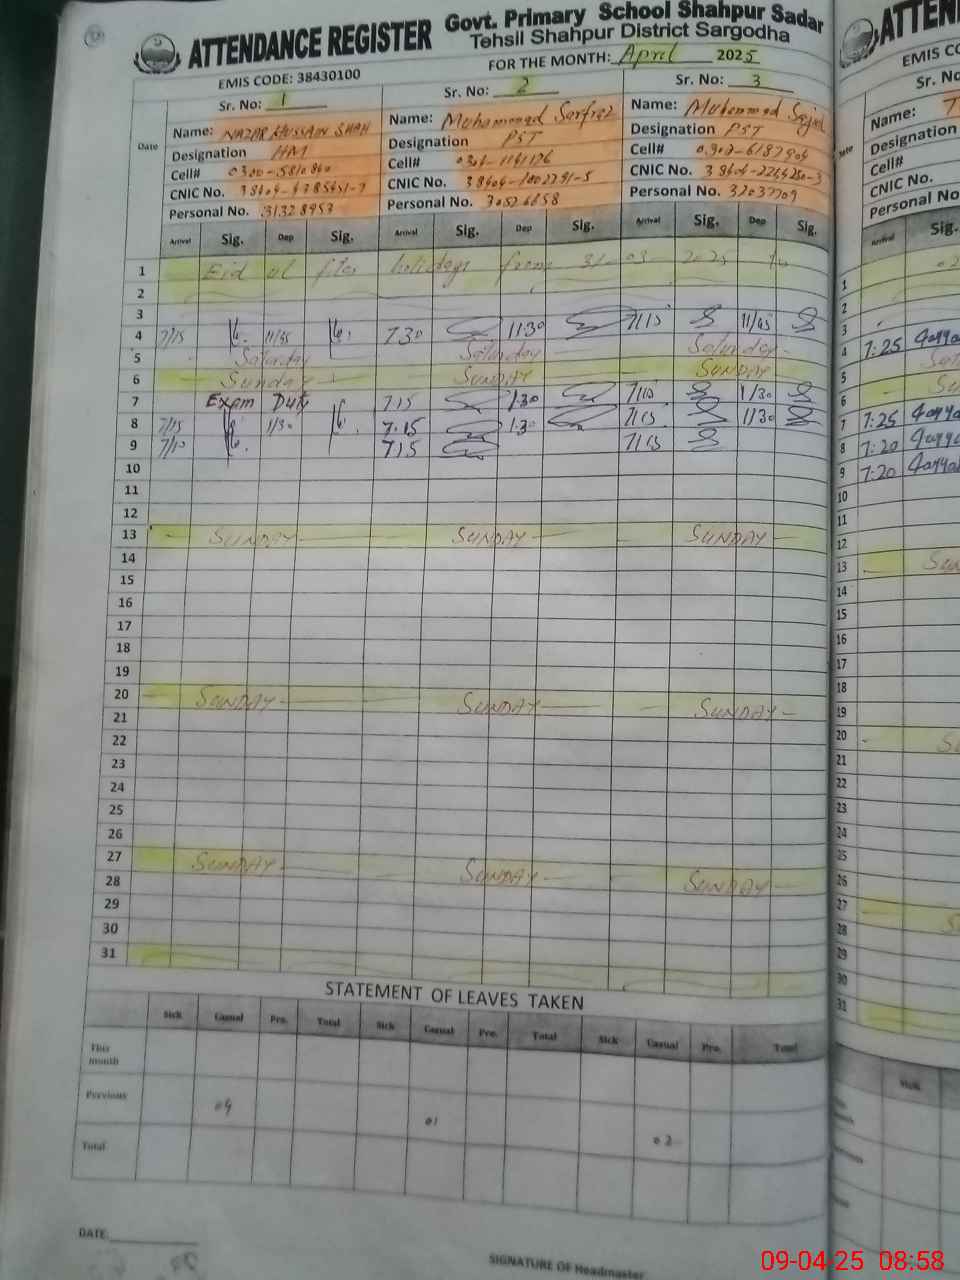 ATTENDANCE REGISTER Govt. Primary School Shahpur Sadar
Tehsil Shahpur District Sargodha
EMIS CODE: 38430100 FOR THE MONTH: April 2025
Sr. No: 1 Sr. No: 2 Sr. No: 3
Date
Name: NAZAR HUSSAIN SHAH Name: Muhammad Sarfraz Name: Muhammad Sajid
Designation HM Designation PST Designation PST
Cell# 0300-5810860 Cell# Cell#
CNIC No. CNIC No. CNIC No.
Personal No. 31328953 Personal No. Personal No.
Arrival Sig. Dep Sig. Arrival Sig. Dep Sig. Arrival Sig. Dep Sig.
1 Eid ul fitar holidays from 31-03 2025 to
2
3
4 7/15 11/45 7.30 11:30 7/15 11/45
5 Saturday Saturday Saturday
6 Sunday SUNDAY SUNDAY
7 Exam Duty 7.15 1:30 7/15 1/30
8 7/15 1/30 7.15 1:30 7/15 1/30
9 7/10 7.15 7/15
10
11
12
13 SUNDAY SUNDAY SUNDAY
14
15
16
17
18
19
20 SUNDAY SUNDAY SUNDAY
21
22
23
24
25
26
27 SUNDAY SUNDAY SUNDAY
28
29
30
31
STATEMENT OF LEAVES TAKEN
Sick Casual Pre. Total Sick Casual Pre. Total Sick Casual Pre. Total
This month
Previous 04 01 02
Total
DATE
SIGNATURE OF Headmaster
ATTEN
EMIS CO
Sr. No
Name: T
Designation
Cell#
CNIC No.
Personal No.
Arrival Sig.
1
2
3
4 7:25
5
6
7 7:25
8 7:20
9 7:20
10
11
12
13 SUN
14
15
16
17
18
19
20 S
21
22
23
24
25
26
27 S
28
29
30
31
Sick
09-04-25 08:58